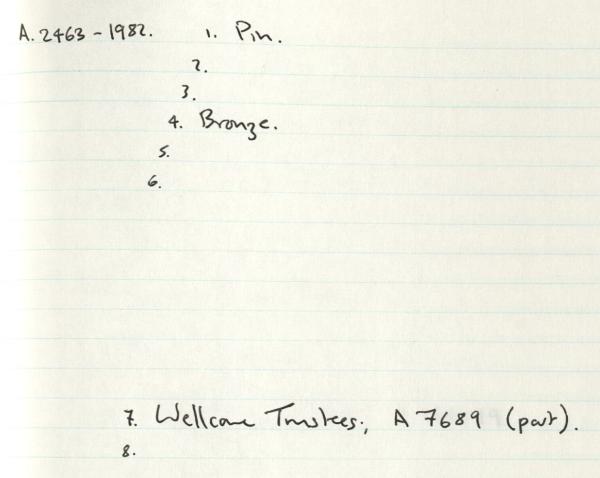 A. 2463 - 1982. 1. Pin.
2.
3.
4. Bronze.
5.
6.
7. Wellcome Trustees; A 7689 (part).
8.